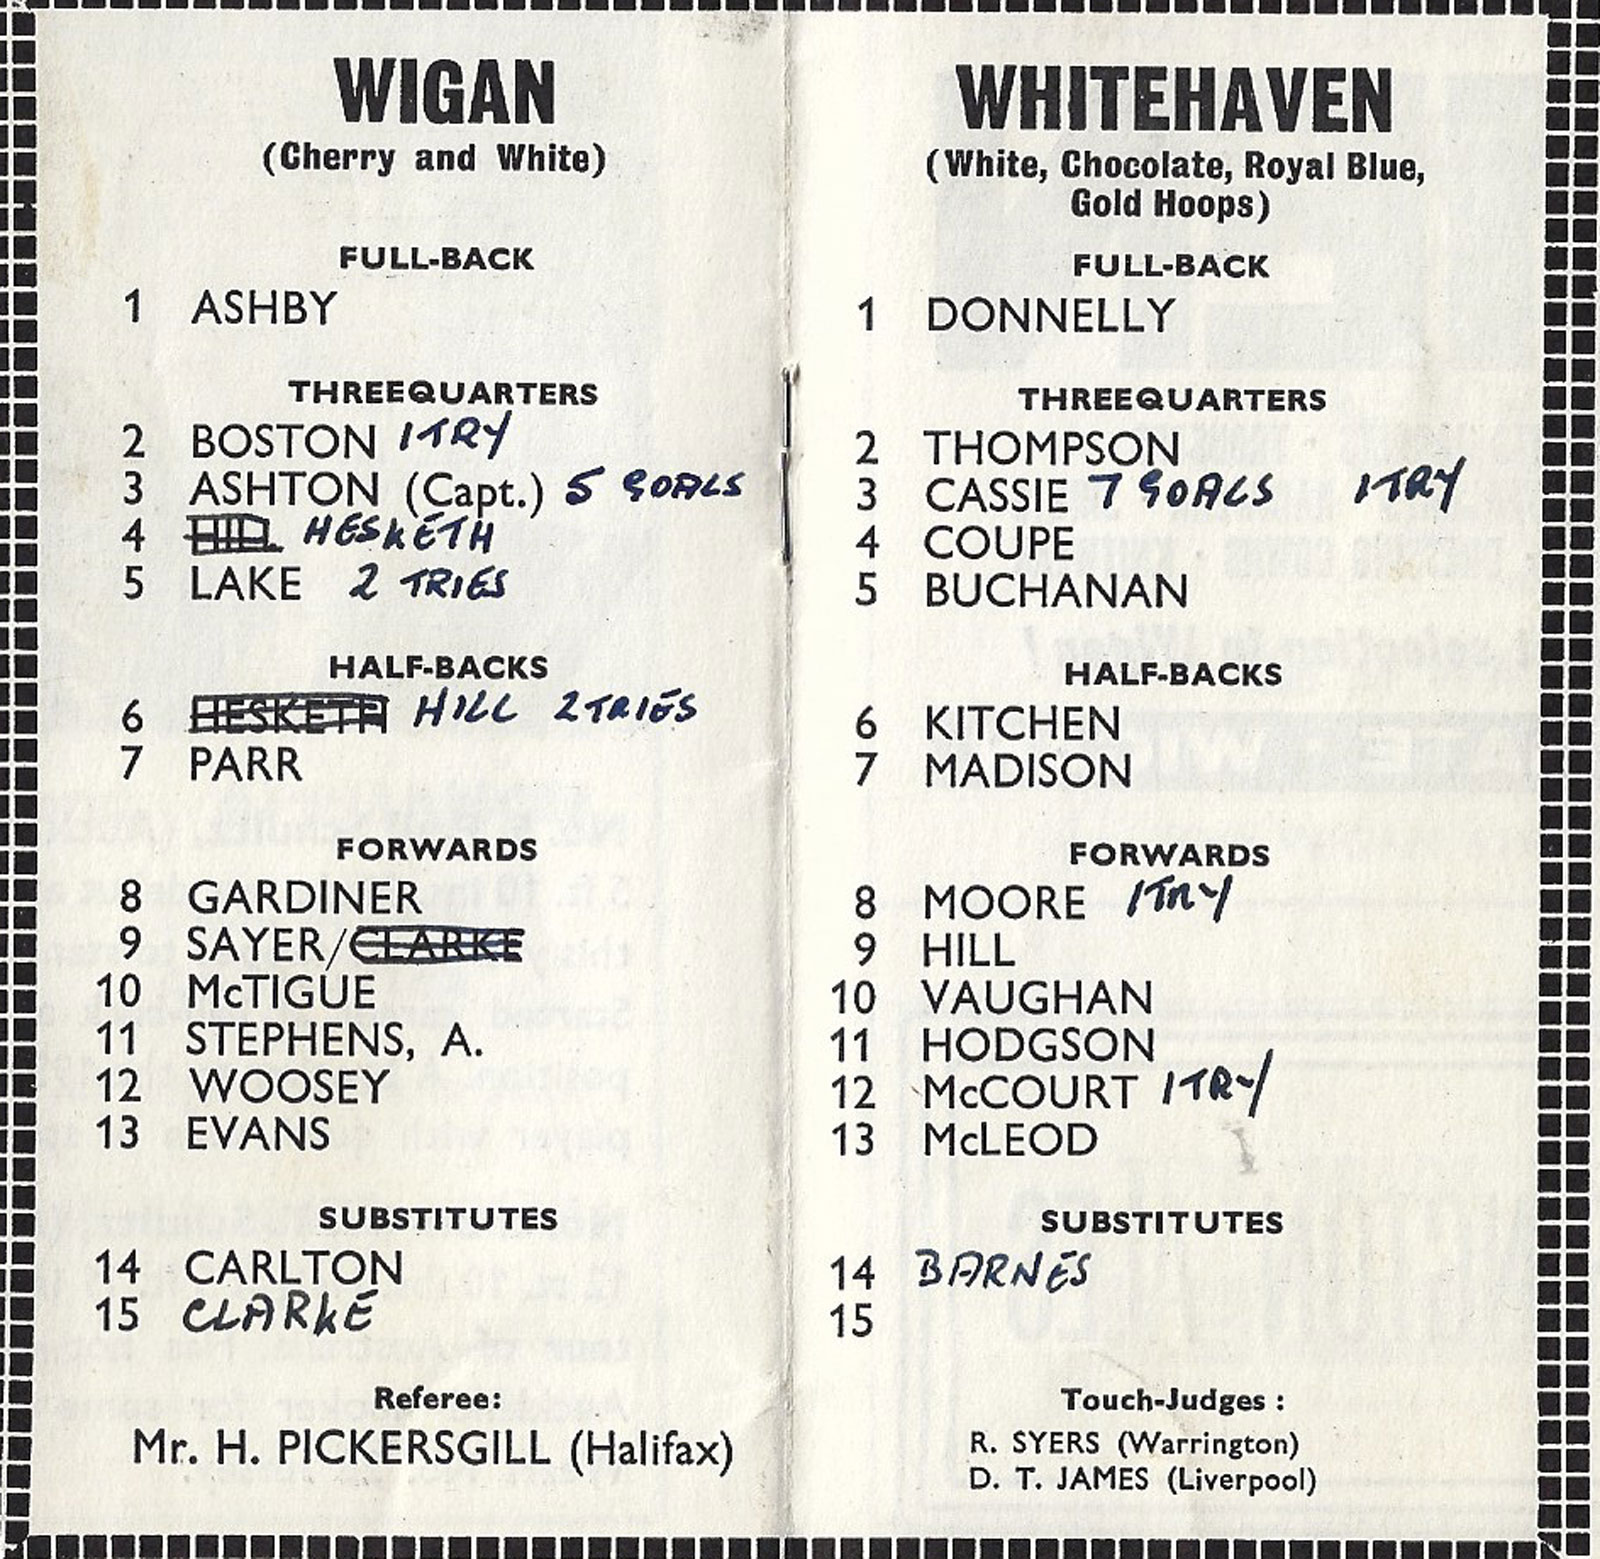 WIGAN
(Cherry and White)
FULL-BACK
1 ASHBY
THREEQUARTERS
2 BOSTON 1 TRY
3 ASHTON (Capt.) 5 GOALS
4 HILL HESKETH
5 LAKE 2 TRIES
HALF-BACKS
6 HESKETH HILL 2 TRIES
7 PARR
FORWARDS
8 GARDINER
9 SAYER/CLARKE
10 McTIGUE
11 STEPHENS, A.
12 WOOSEY
13 EVANS
SUBSTITUTES
14 CARLTON
15 CLARKE
Referee:
Mr. H. PICKERSGILL (Halifax)
WHITEHAVEN
(White, Chocolate, Royal Blue,
Gold Hoops)
FULL-BACK
1 DONNELLY
THREEQUARTERS
2 THOMPSON
3 CASSIE 7 GOALS 1 TRY
4 COUPE
5 BUCHANAN
HALF-BACKS
6 KITCHEN
7 MADISON
FORWARDS
8 MOORE 1 TRY
9 HILL
10 VAUGHAN
11 HODGSON
12 McCOURT 1 TRY
13 McLEOD
SUBSTITUTES
14 BARNES
15
Touch-Judges :
R. SYERS (Warrington)
D. T. JAMES (Liverpool)